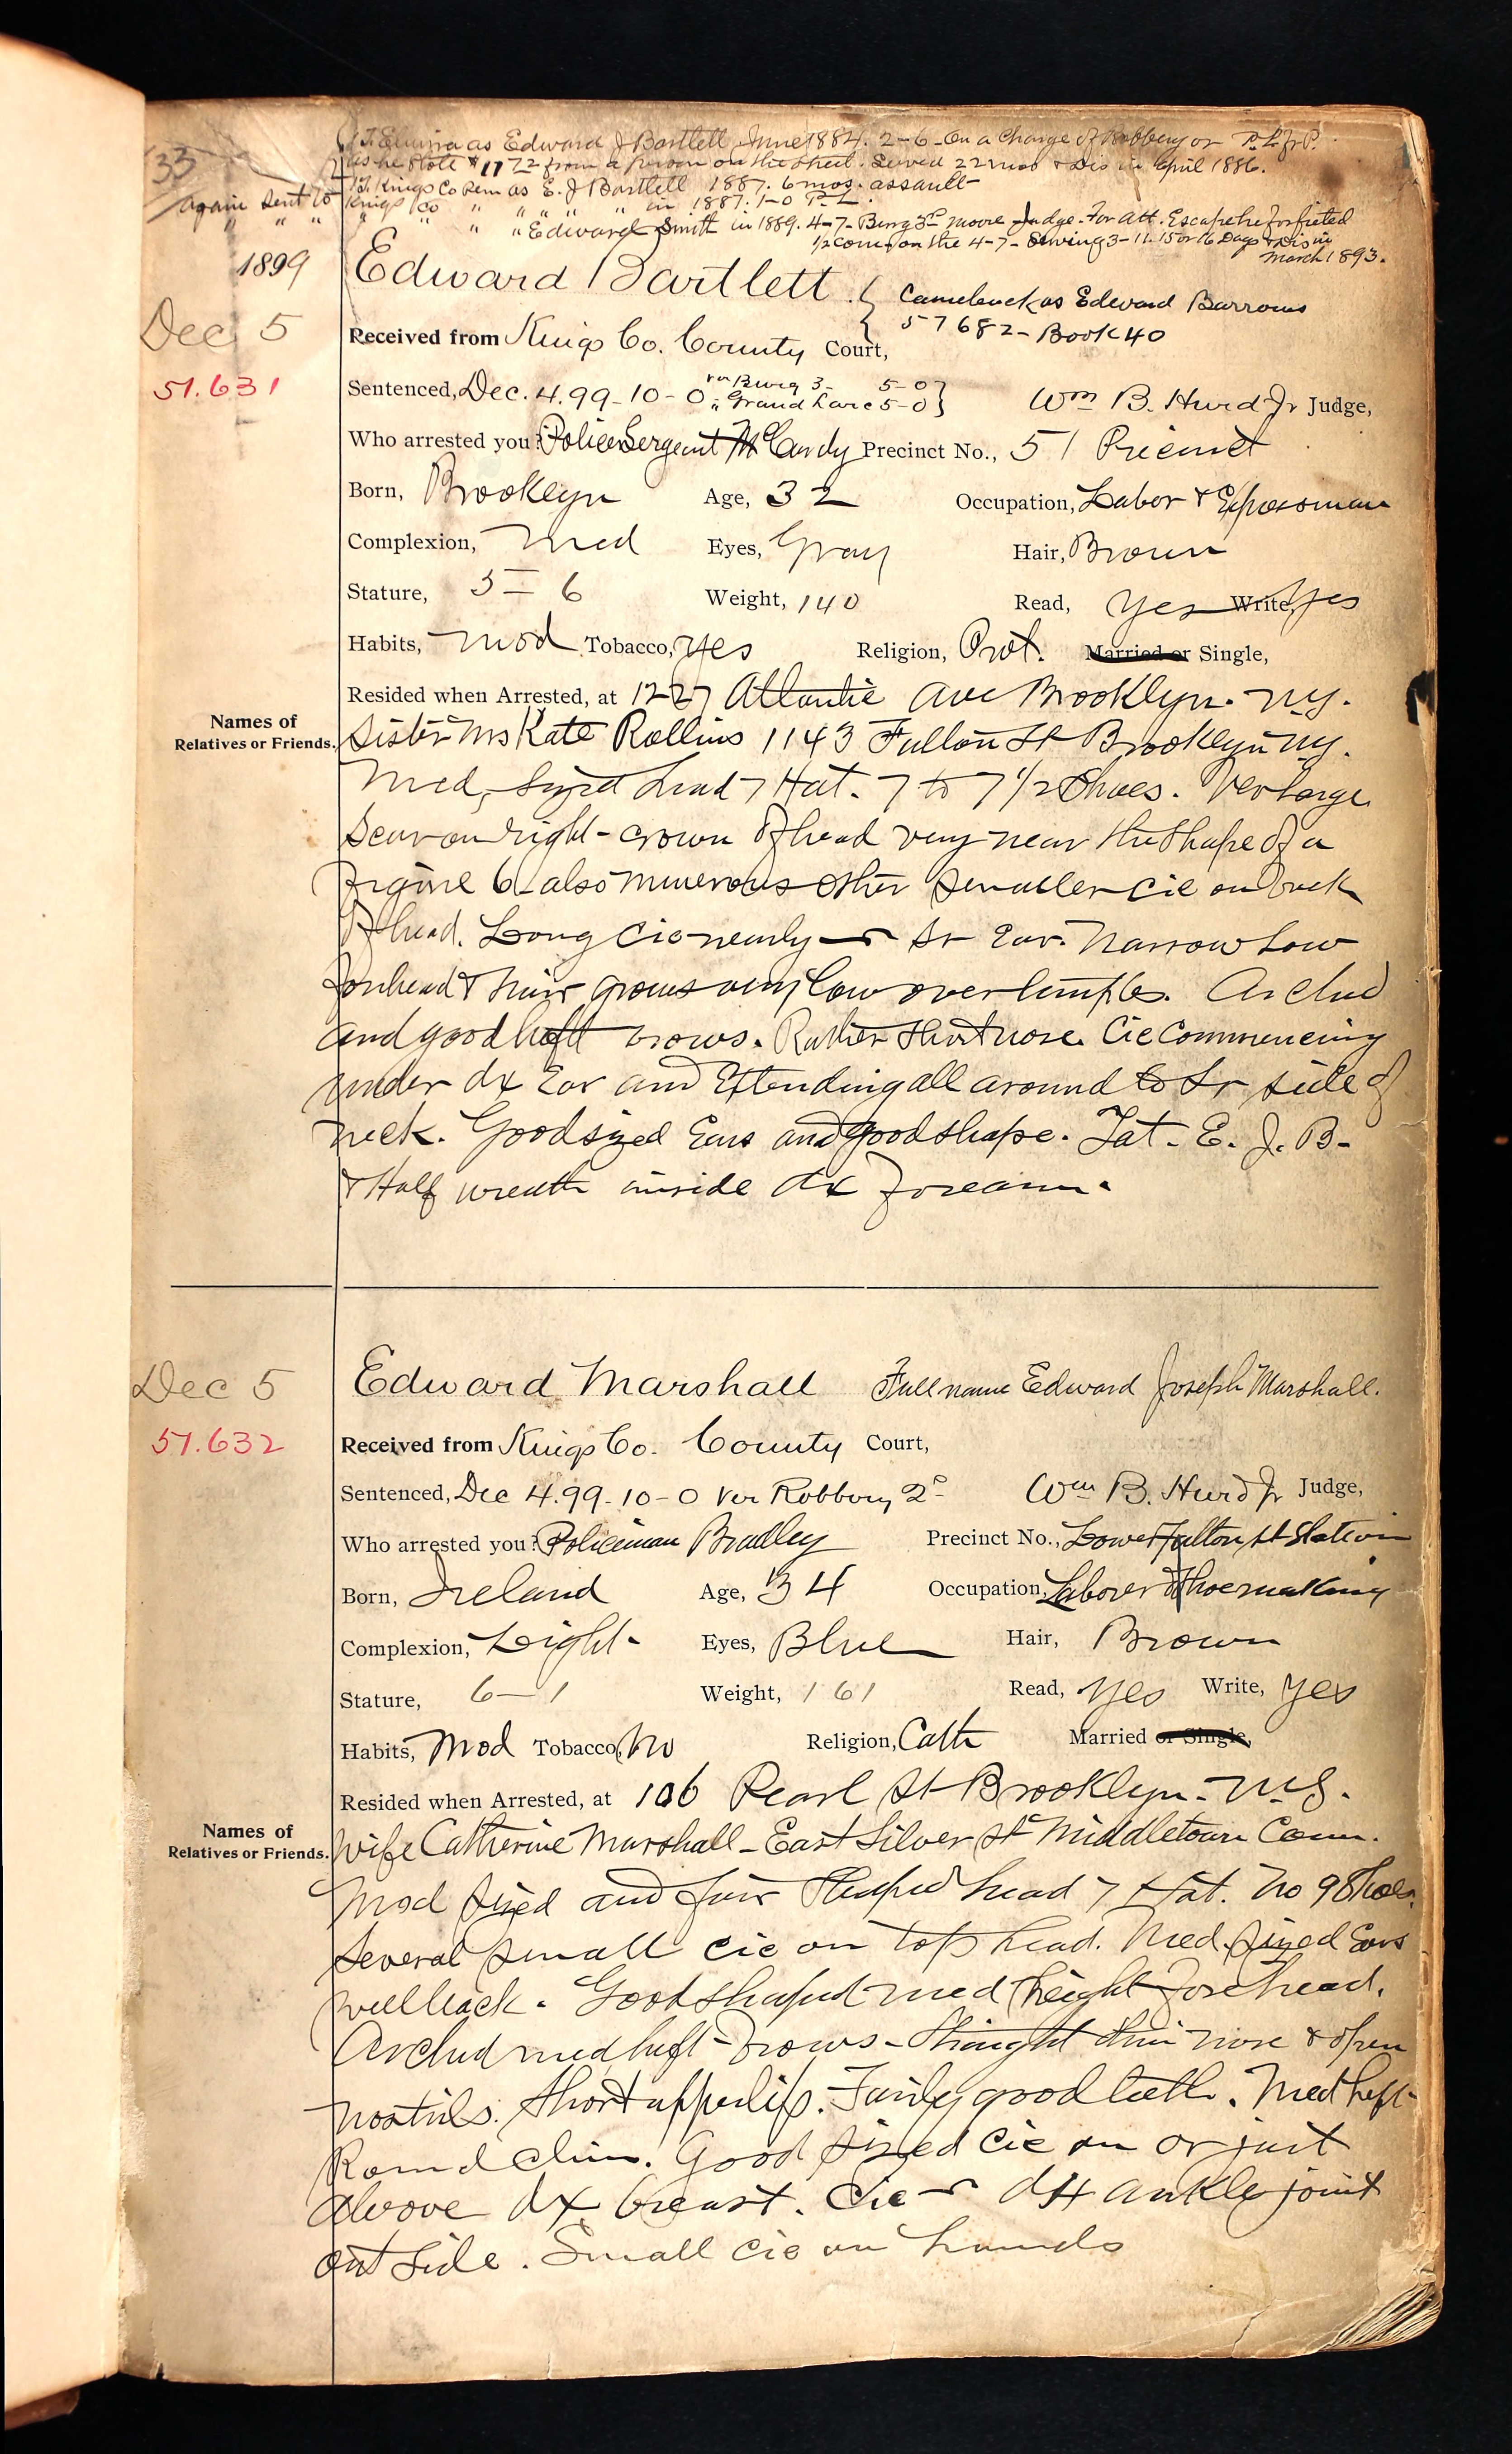 33
1st Elmira as Edward J Bartlett June 1884. 2-6 - On a Charge of Robbery or P. L. fr P.
as he stole $11 72 from a person on the street. Served 22 mos & Dis in April 1886.
1st Kings Co Pen as E. J Bartlett 1887. 6 mos. assault-
again sent to Kings Co " " " " " in 1887. 1-0 P. L.
" " " " " " Edward Smith in 1889. 4-7- Burg 3rd Moore Judge. For Att. Escape he forfieted
1/2 com on the 4-7- Serving 3-11. 15 or 16 Days & Dis in
March 1893.
1899
Edward Bartlett. { Came back as Edward Barrows
57682 - Book 40
Dec 5
Received from Kings Co. County Court,
51.631
Sentenced, Dec. 4. 99-10-0 Burg 3- 5-0 }
" Grand Larc 5-0 } Wm B. Hurd Jr Judge,
Who arrested you? Police Sergeant McCardy Precinct No., 51 Precinct
Born, Brooklyn Age, 32 Occupation, Labor & Expressman
Complexion, Med Eyes, Gray Hair, Brown
Stature, 5-6 Weight, 140 Read, yes Write, yes
Habits, Mod Tobacco, yes Religion, Prot. Married or Single,
Resided when Arrested, at 1227 Atlantic Ave Brooklyn. N.Y.
Names of
Relatives or Friends.
Sister Mrs Kate Rollins 1143 Fulton St Brooklyn N.Y.
Med, sized head 7 Hat. 7 to 7 1/2 Shoes. Very large
scar on right-crown of head very near the shape of a
figure 6 - also numerous other smaller cic on back
of head. Long cic nearly Sr Ear. Narrow low
forehead & hair grows very low over temples. Arched
and good heft brows. Rather short nose. Cic commencing
under dx Ear and Extending all around to Sr side of
neck. Good sized Ears and good shape. Tat. E. J. B-
& Half wreath inside dx forearm.
Dec 5
Edward Marshall Full name Edward Joseph Marshall.
51.632
Received from Kings Co. County Court,
Sentenced, Dec 4. 99-10-0 for Robbery 2d Wm B. Hurd Jr Judge,
Who arrested you? Policeman Bradley Precinct No., Lower Fulton St Station
Born, Ireland Age, 34 Occupation, Laborer & Shoemaking
Complexion, Light- Eyes, Blue Hair, Brown
Stature, 6-1 Weight, 161 Read, yes Write, yes
Habits, Mod Tobacco, No Religion, Cath Married or Single,
Resided when Arrested, at 106 Pearl St Brooklyn. N.Y.
Names of
Relatives or Friends.
Wife Catherine Marshall - East Silver St Middletown Conn.
Med sized and fair shaped head 7 Hat. No 9 Shoes.
Several small cic on top head. Med. sized Ears
well back. Good shaped med height forehead.
Arched med heft-brows - Straight thin nose & open
nostrils. Short upper lip. Fairly good teeth. Med heft-
Round chin. Good sized cic on or just
above dx breast. Cic dx ankle joint
out side. Small cic on hands